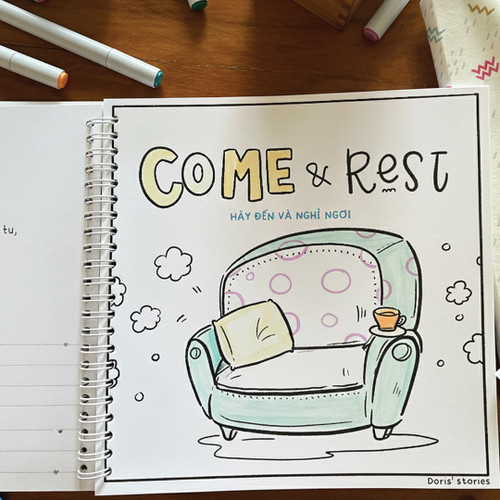 tu,
COME & REST
HÃY ĐẾN VÀ NGHỈ NGƠI
Doris' stories